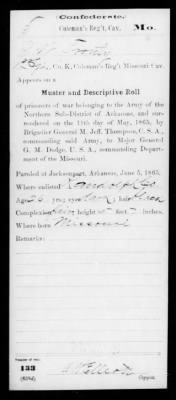 Confederate.
Coleman's Reg't, Cav. Mo.
Co. K, Coleman's Reg't Missouri Cav.
Appears on a
Muster and Descriptive Roll
of prisoners of war belonging to the Army of the
Northern Sub-District of Arkansas, and sur-
rendered on the 11th day of May, 1865, by
Brigadier General M. Jeff. Thompson, C. S. A.,
commanding said Army, to Major General
G. M. Dodge, U. S. A., commanding Depart-
ment of the Missouri.
Paroled at Jacksonport, Arkansas, June 5, 1865.
Where enlisted Randolph Co
Age ; eyes ; hair
Complexion ; height ft. 7 inches.
Where born Missouri
Remarks:
Number of roll:
133
Copyist.